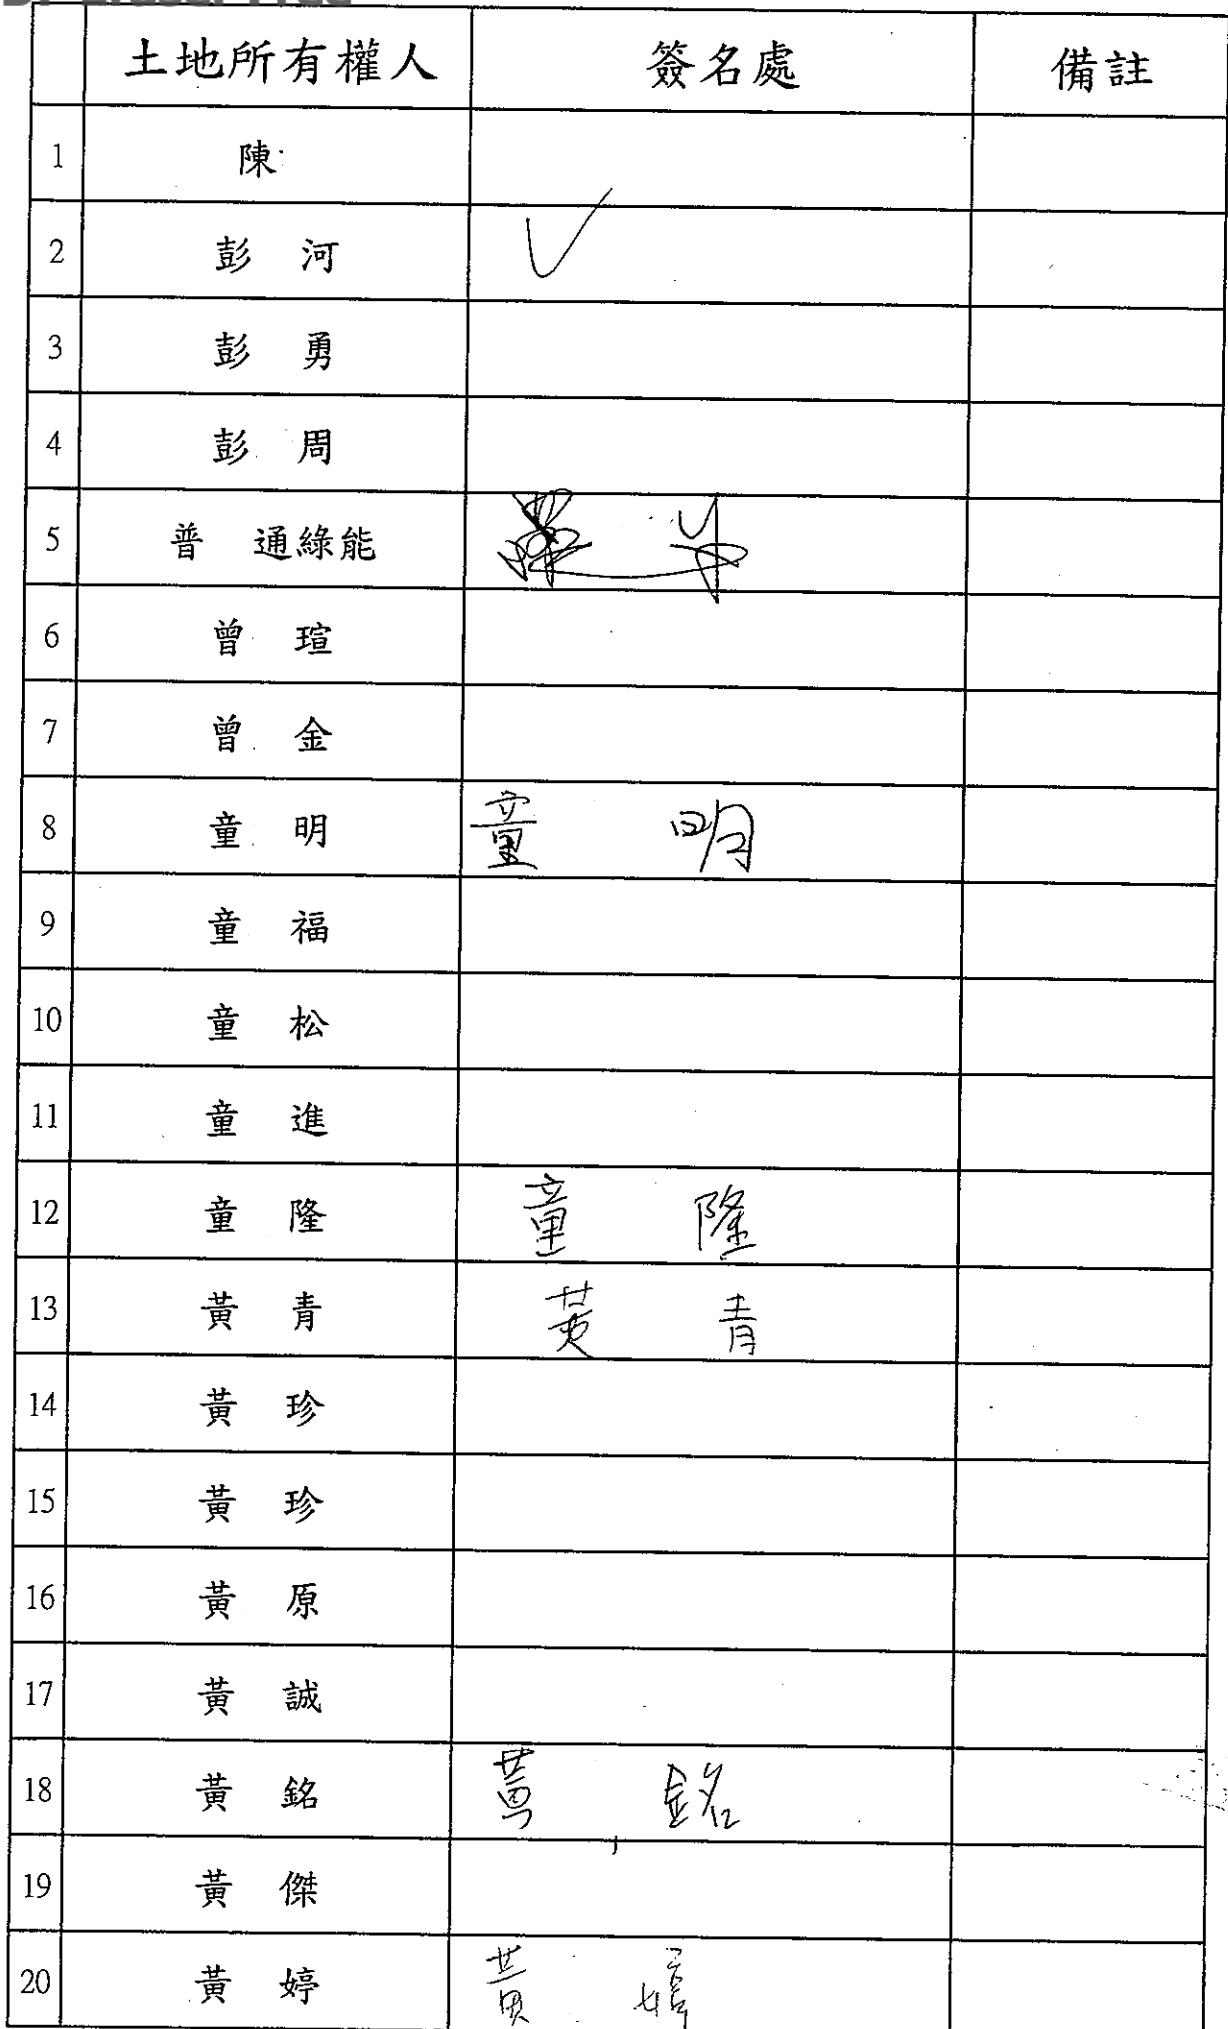 土地所有權人 簽名處 備註
1 陳
2 彭 河
3 彭 勇
4 彭 周
5 普 通綠能
6 曾 瑄
7 曾 金
8 童 明 童 明
9 童 福
10 童 松
11 童 進
12 童 隆 童 隆
13 黃 青 黃 青
14 黃 珍
15 黃 珍
16 黃 原
17 黃 誠
18 黃 銘 黃 銘
19 黃 傑
20 黃 婷 黃 婷